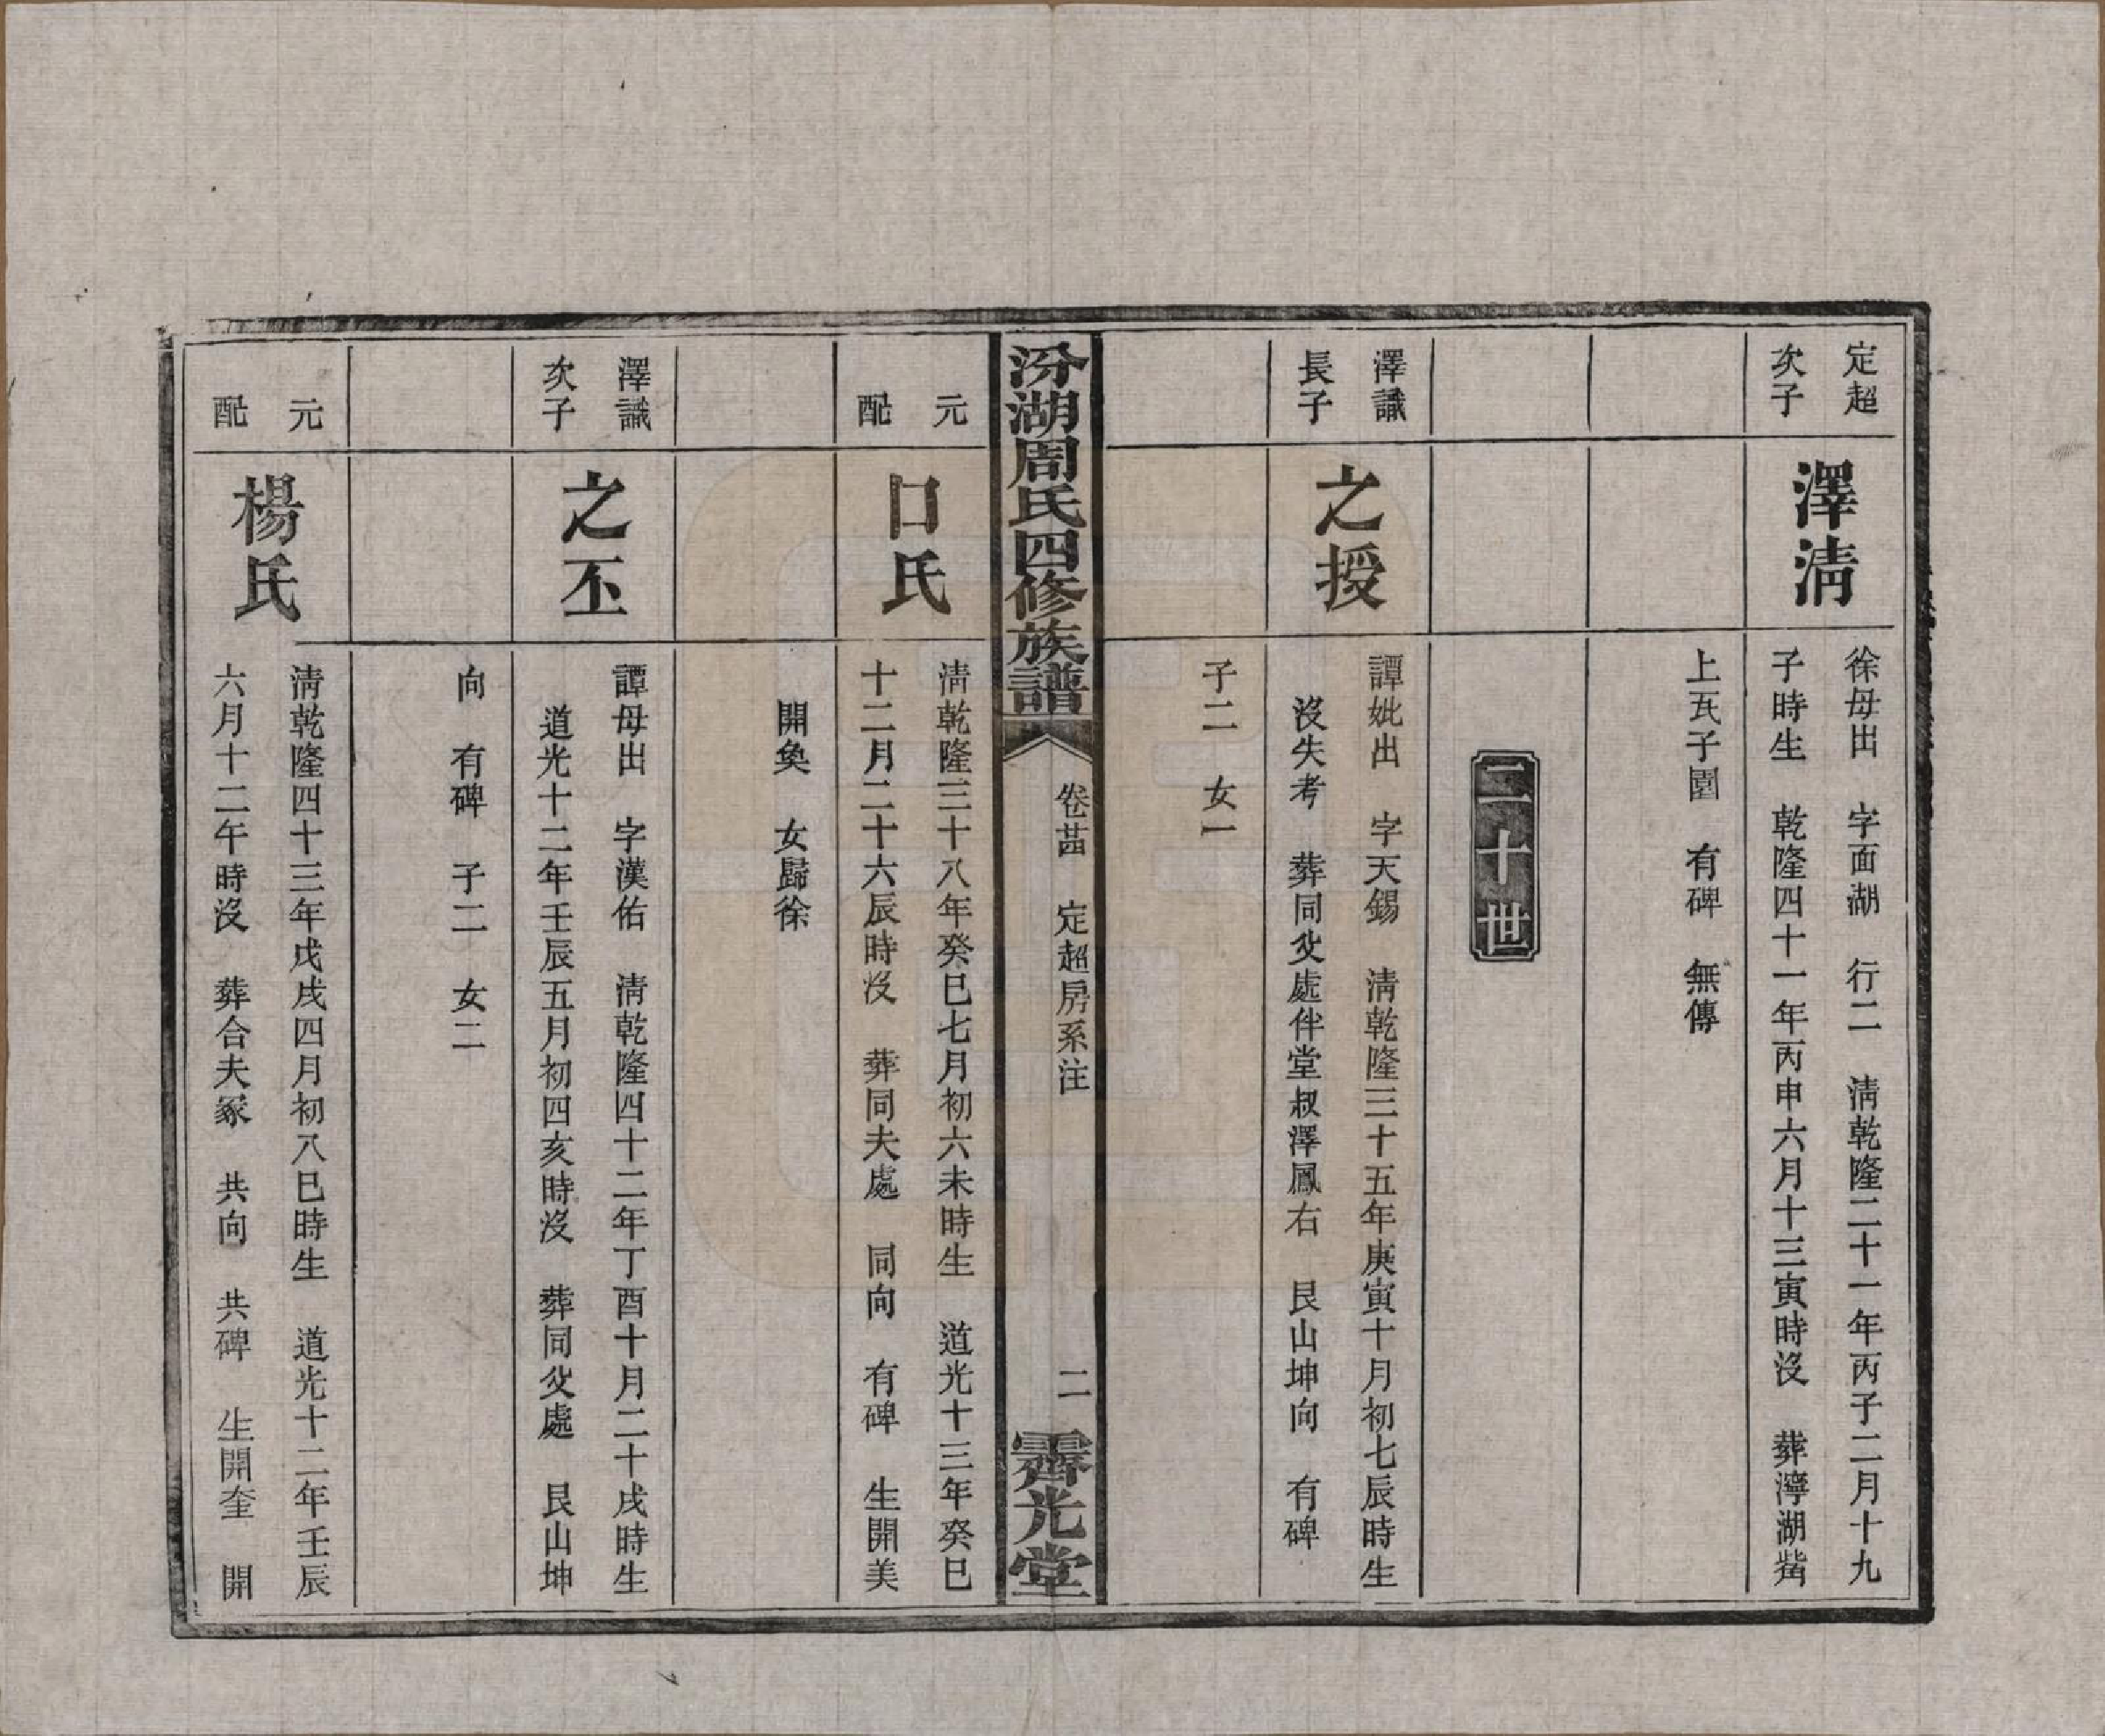 定超
次子
澤清
徐母出　字面湖　行二　清乾隆二十一年丙子二月十九
子時生　乾隆四十一年丙申六月十三寅時沒　葬濘湖觜
上瓦子園　有碑　無傳
二十世
澤議
長子
之授
譚妣出　字天錫　清乾隆三十五年庚寅十月初七辰時生
沒失考　葬同父處伴堂叔澤鳳右　艮山坤向　有碑
子二　女一
汾湖周氏四修族譜
卷茁　定超房系注
二
霽光堂
元
配
口氏
清乾隆三十八年癸巳七月初六未時生　道光十三年癸巳
十二月二十六辰時沒　葬同夫處　同向　有碑　生開美
開奐　女歸徐
澤議
次子
之丕
譚母出　字漢佑　清乾隆四十二年丁酉十月二十戌時生
道光十二年壬辰五月初四亥時沒　葬同父處　艮山坤
向　有碑　子二　女二
元
配
楊氏
清乾隆四十三年戊戌四月初八巳時生　道光十二年壬辰
六月十二午時沒　葬合夫冢　共向　共碑　生開奎　開